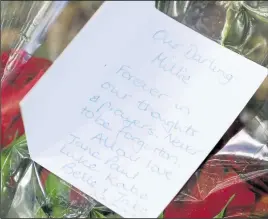 Our Darling
Millie
Forever in
our thoughts
& prayers. Never
to be forgotten
All our love
Jamie Paul
Luke Karlie
Belle & Jake